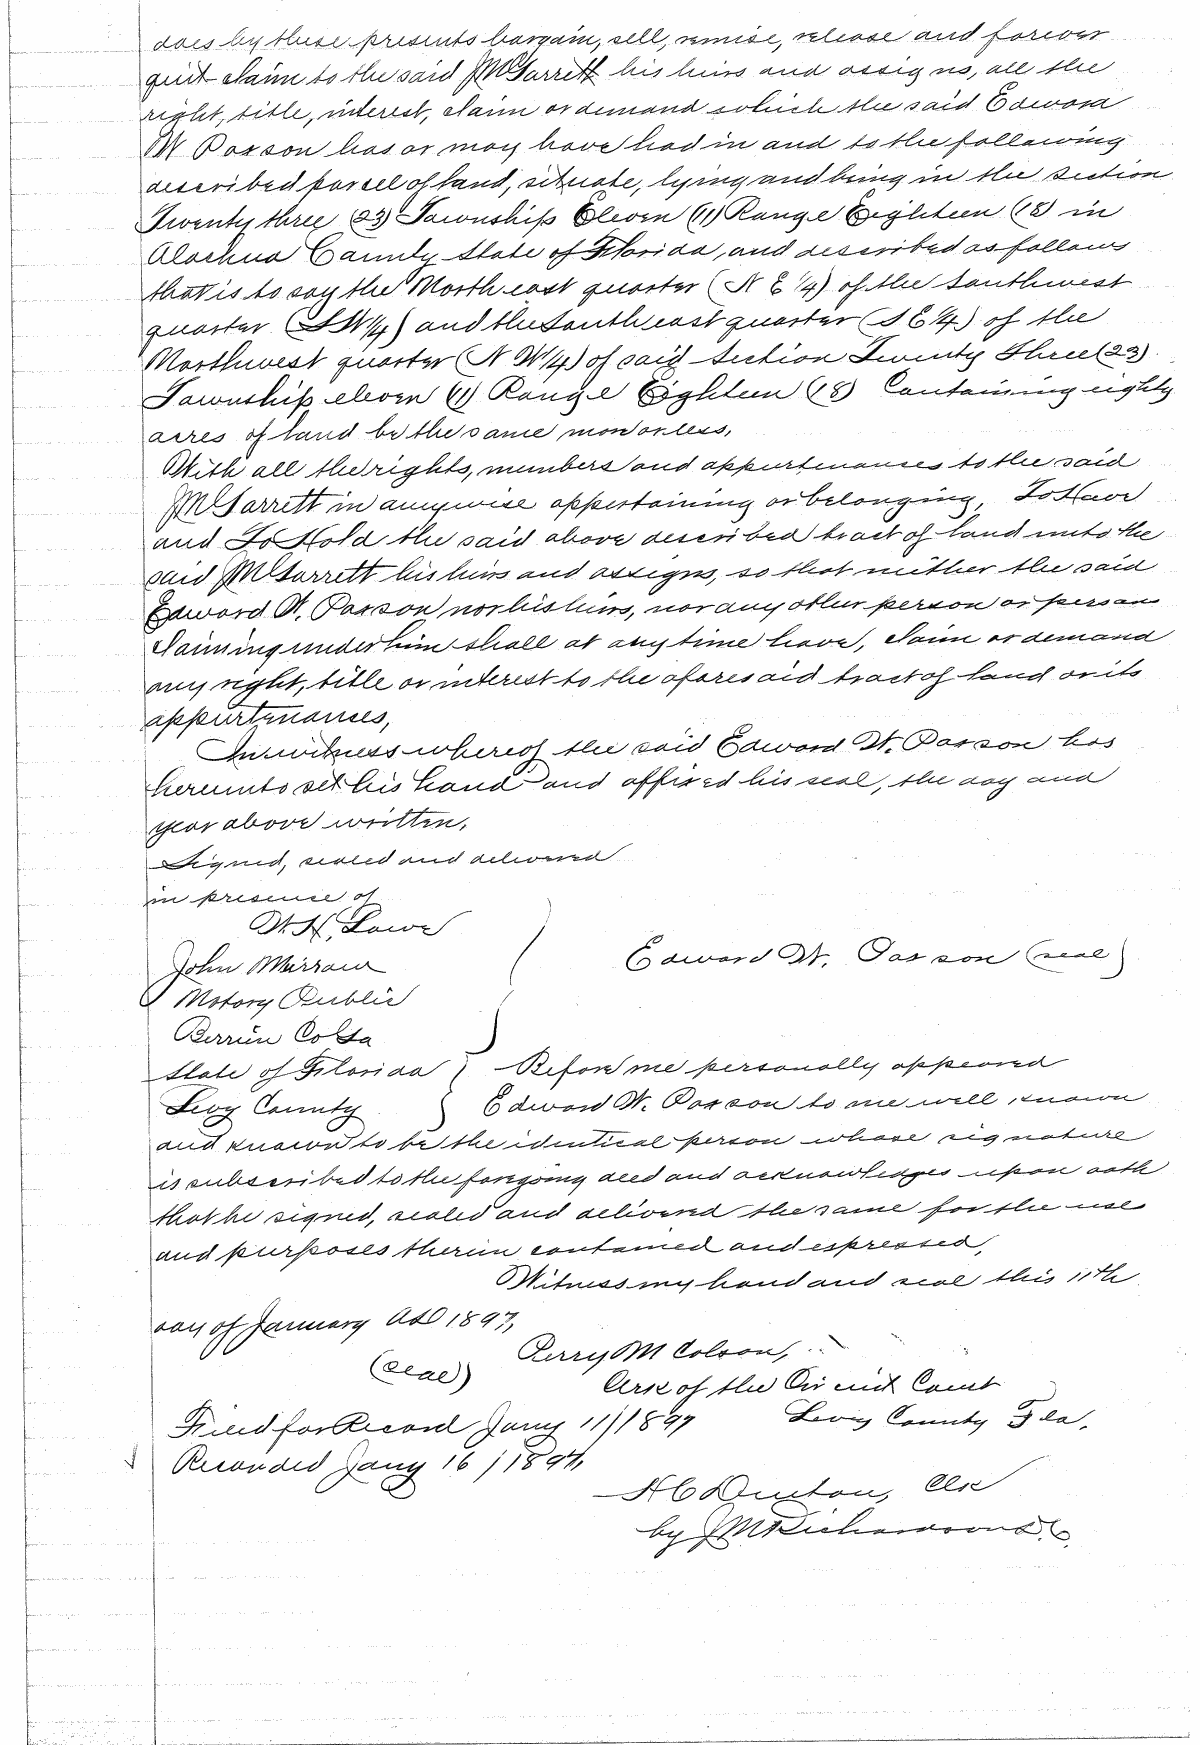 does by these presents bargain, sell, remise, release and forever
quit claim to the said J M Garrett his heirs and assigns, all the
right, title, interest, claim or demand which the said Edward
W Paxson has or may have had in and to the following
described parcel of land, situate, lying and being in the section
Twenty three (23) Township Eleven (11) Range Eighteen (18) in
Alachua County State of Florida, and described as follows
that is to say the North east quarter (N E 1/4) of the Southwest
quarter (S W 1/4) and the South east quarter (S E 4) of the
Northwest quarter (N W 1/4) of said Section Twenty Three (23)
Township eleven (11) Range Eighteen (18) Containing eighty
acres of land be the same more or less,
With all the rights, members and appurtenances to the said
J M Garrett in anywise appertaining or belonging, To Have
and To Hold the said above described tract of land unto the
said J M Garrett his heirs and assigns, so that neither the said
Edward W. Paxson nor his heirs, nor any other person or persons
Claiming under him shall at any time have, claim or demand
any right, title or interest to the aforesaid tract of land or its
appurtenances,
In witness whereof the said Edward W. Paxson has
hereunto set his hand and affixed his seal, the day and
year above written,
Signed, sealed and delivered
in presence of
W. H. Lowe
Edward W. Paxson (seal)
John
Notary Public
Berrien Co Ga
State of Florida } Before me personally appeared
Levy County } Edward W. Paxson to me well known
and known to be the identical person whose signature
is subscribed to the foregoing deed and acknowledges upon oath
that he signed, sealed and delivered the same for the uses
and purposes therein contained and expressed,
Witness my hand and seal this 11th
day of January AD 1897,
(seal) Perry M Colson,
Clerk of the Circuit Court
Filed for Record Jany 11/1897 Levy County Fla.
Recorded Jany 16/1897,
H C Denton, Clk
by J M Richardson